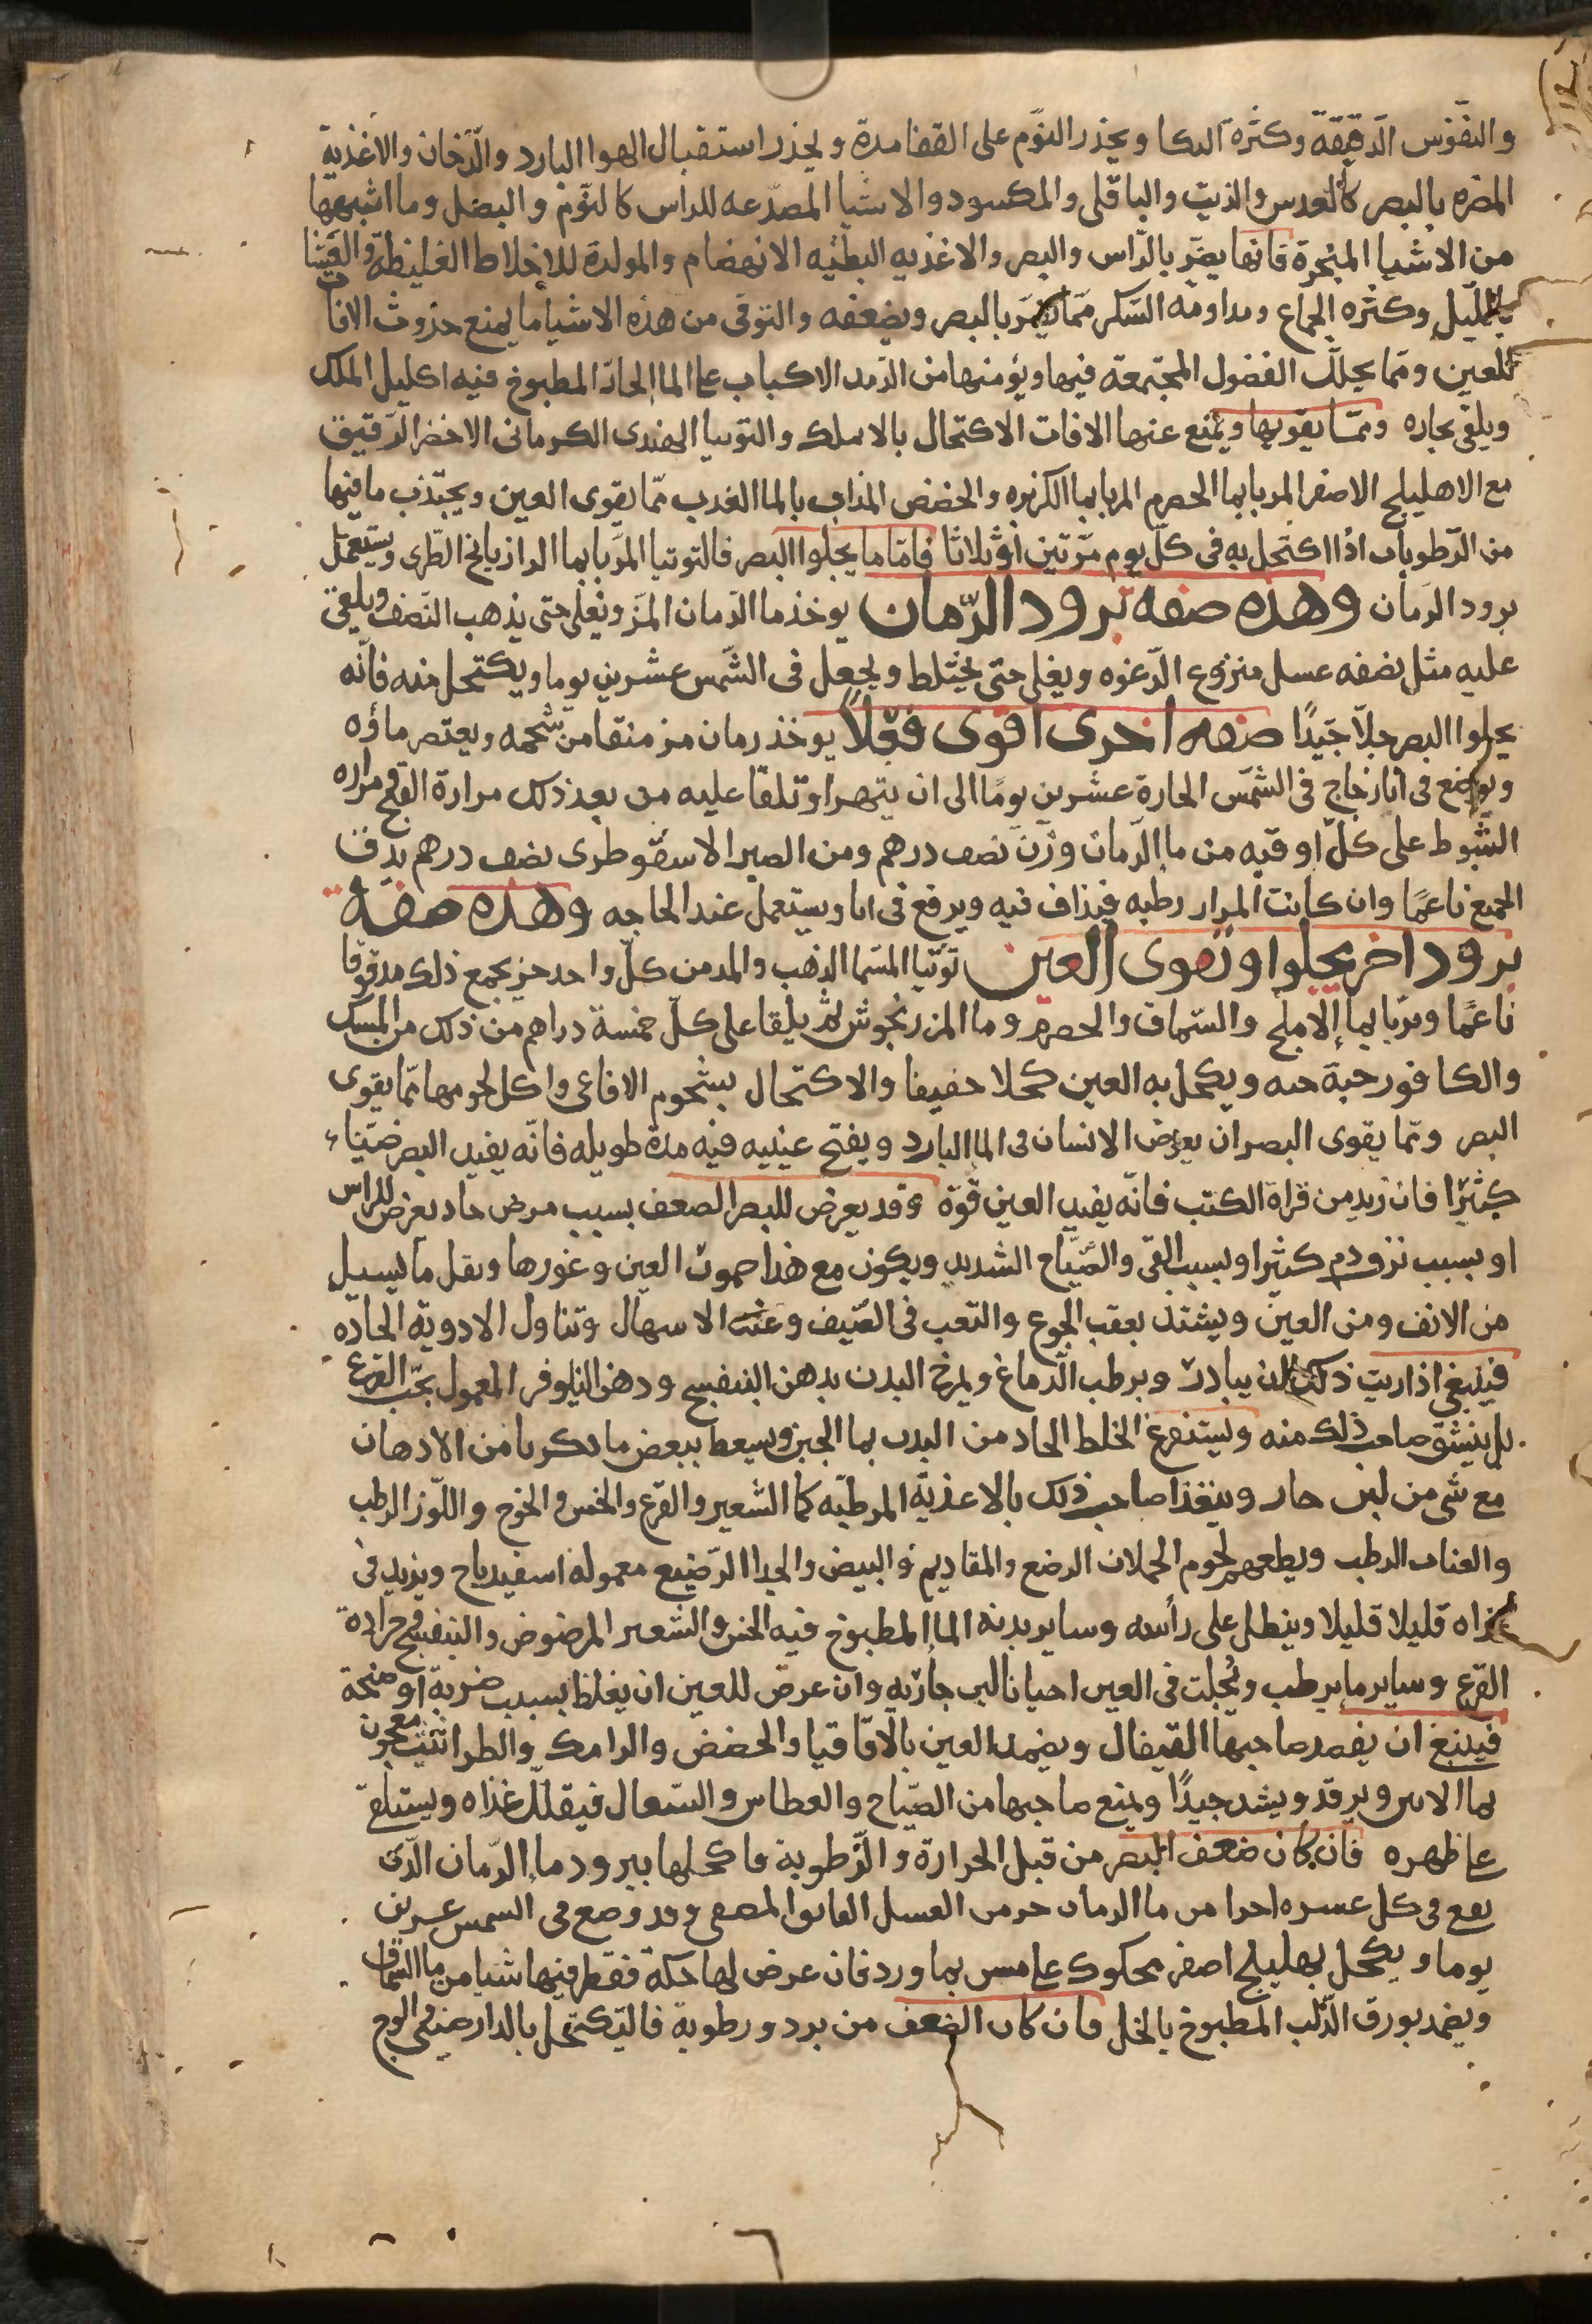 والنقوس الدقيقة وكثرة البكا ويحذر النوم على القفا مدة ويحذر استقبال الهوا البارد والدخان والاغذية
المضره بالبصر كالعدس والزيت والباقلى والمكسود والاشيا المصدعه للراس كالثوم والبصل وما اشبهها
من الاشيا المبخرة فانها يضر بالراس والبصر والاغذيه البطئيه الانهضام والمولدة للاخلاط الغليظة والعشا
بالليل وكثره الجماع ومداومه السكر مما يضر بالبصر ويضعفه والتوقى من هذه الاشيا ما يمنع حذوث الافات
للعين ومما يحلل الفضول المجتمعة فيها ويؤمنها من الرمد الاكباب على الما الحاد المطبوخ فيه اكليل الملك
ويلقى بخاره ومما يقويها ويمنع عنها الافات الاكتحال بالاملك والتوتيا الهندى الكرمانى الاخضر الدقيق
مع الاهليلج الاصفر المربا بما الحصرم المربا بما الكزبره والحضض المذاب بالما العذب مما يقوى العين ويجتذب ما فيها
من الرطوبات اذا اكتحل به فى كل يوم مرتين او ثلاثا فاما ما يجلوا البصر فالتوتيا المربا بما الرازيانج الطرى ويستعمل
برود الرمان وهذه صفه برود الرمان يوخذ ما الرمان المز ويغلى حتى يذهب النصف ويلقى
عليه مثل نصفه عسل منزوع الرغوه ويغلى حتى يختلط ويجعل فى الشمس عشرين يوما ويكتحل منه فانه
يجلوا البصر جلآ جيدًا صفه اخرى اقوى فعلاً يوخذ رمان مز منقا من شحمه ويعتصر ماؤه
ويوضع فى انا زجاج فى الشمس الحارة عشرين يومًا الى ان يتهرا وتلقا عليه من بعد ذلك مرارة القبج ومراره
الشبوط على كل اوقيه من ما الرمان وزن نصف درهم ومن الصبر الاسقوطرى نصف درهم يدق
الجميع ناعمًا وان كانت المرار رطبه فيذاف فيه ويرفع فى انا ويستعمل عند الحاجه وهذه صفة
برود اخر يجلوا ويقوى العين توتيا المسما الذهب والمد من كل واحد جز يجمع ذلك مدقوقا
ناعمًا ويربا بما الاملج والسماق والحصرم وما المرزنجوش ثم يلقا على كل خمسة دراهم من ذلك من المسك
والكافور حبة حبه ويكحل به العين كحلا خفيفا والاكتحال بشحوم الافاعى واكل لحومها مما يقوى
البصر ومما يقوى البصر ان يعوض الانسان فى الما البارد ويفتح عينيه فيه مدة طويله فانه يفيد البصر ضياء
كثيرا فان زيد من قراة الكتب فانه يفيد العين قوة وقد يعرض للبصر الضعف بسبب مرض حاد يعرض للراس
او بسبب نزو دم كثير او بسبب القى والصياح الشديد ويكون مع هذا ضمور العين وغورها ويقل ما يسيل
من الانف ومن العين ويشتد بعقب الجوع والتعب فى الصيف وعند الاسهال وتناول الادوية الحاده
فينبغى اذا ريت ذلك ان يبادر ويرطب الدماغ ويمرخ البدن بدهن البنفسج ودهن النيلوفر المعمول بحب القرع
بل ينشق صاحب ذلك منه ويستفرغ الخلط الحاد من البدن بما الجبن ويسعط ببعض ما ذكرنا من الادهان
مع شى من لبن حار ويتغذا صاحب ذلك بالاغذية المرطبه كما الشعير والقرع والخس والخوخ واللوز الرطب
والعناب الرطب ويطعمهم لحوم الحملان الرضع والمقاديم والبيض والجدا الرضيع معموله اسفيدباج ويزيد فى
غذاه قليلا قليلا وينطل على رأسه وساير بدنه الما المطبوخ فيه الخس والشعير المرضوض والبنفسج وجرادة
القرع وساير ما يرطب ويحلب فى العين احيانا لبن جارية وان عرض للعين ان يغلظ بسبب ضربة او ضخة
فينبغ ان يفصد صاحبها القيفال ويضمد العين بالاقاقيا والحضض والرامك والطراثيث معجون
بما الاس ويرفد ويشد جيدًا ويمنع صاحبها من الصياح والعطاس والسعال فيقلل غذاه ويستلقى
على ظهره فان كان ضعف البصر من قبل الحرارة والرطوبة فاكحلها ببرود ما الرمان الذى
يقع فى كل عشره اجزا من ما الرمان جز من العسل الفايق المصفى وقد وضع فى الشمس عشرين
يوما ويكحل بهليلج اصفر محكوك على مسن بماورد فان عرض لها حكة فقطر فيها شيا من ما السماق
ويضمد بورق الدلب المطبوخ بالخل فان كان الضعف من برد ورطوبة فالتكتحل بالدارصينى والوج